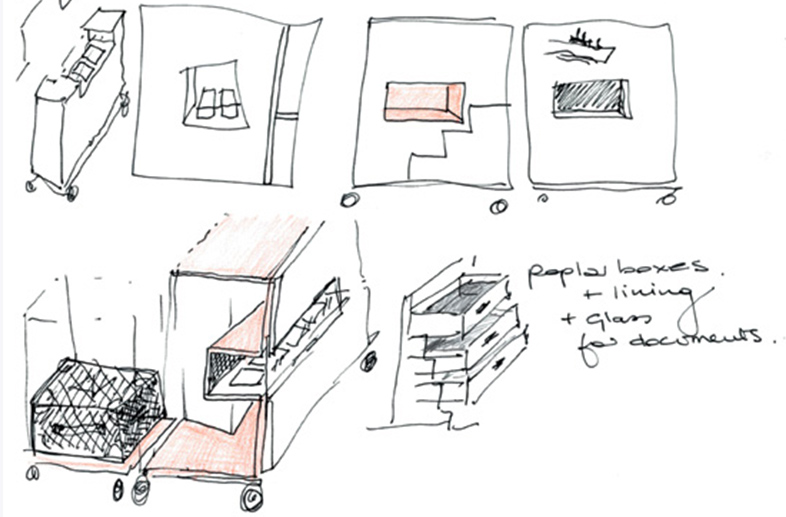 poplar boxes.
+ lining
+ glass
for documents.